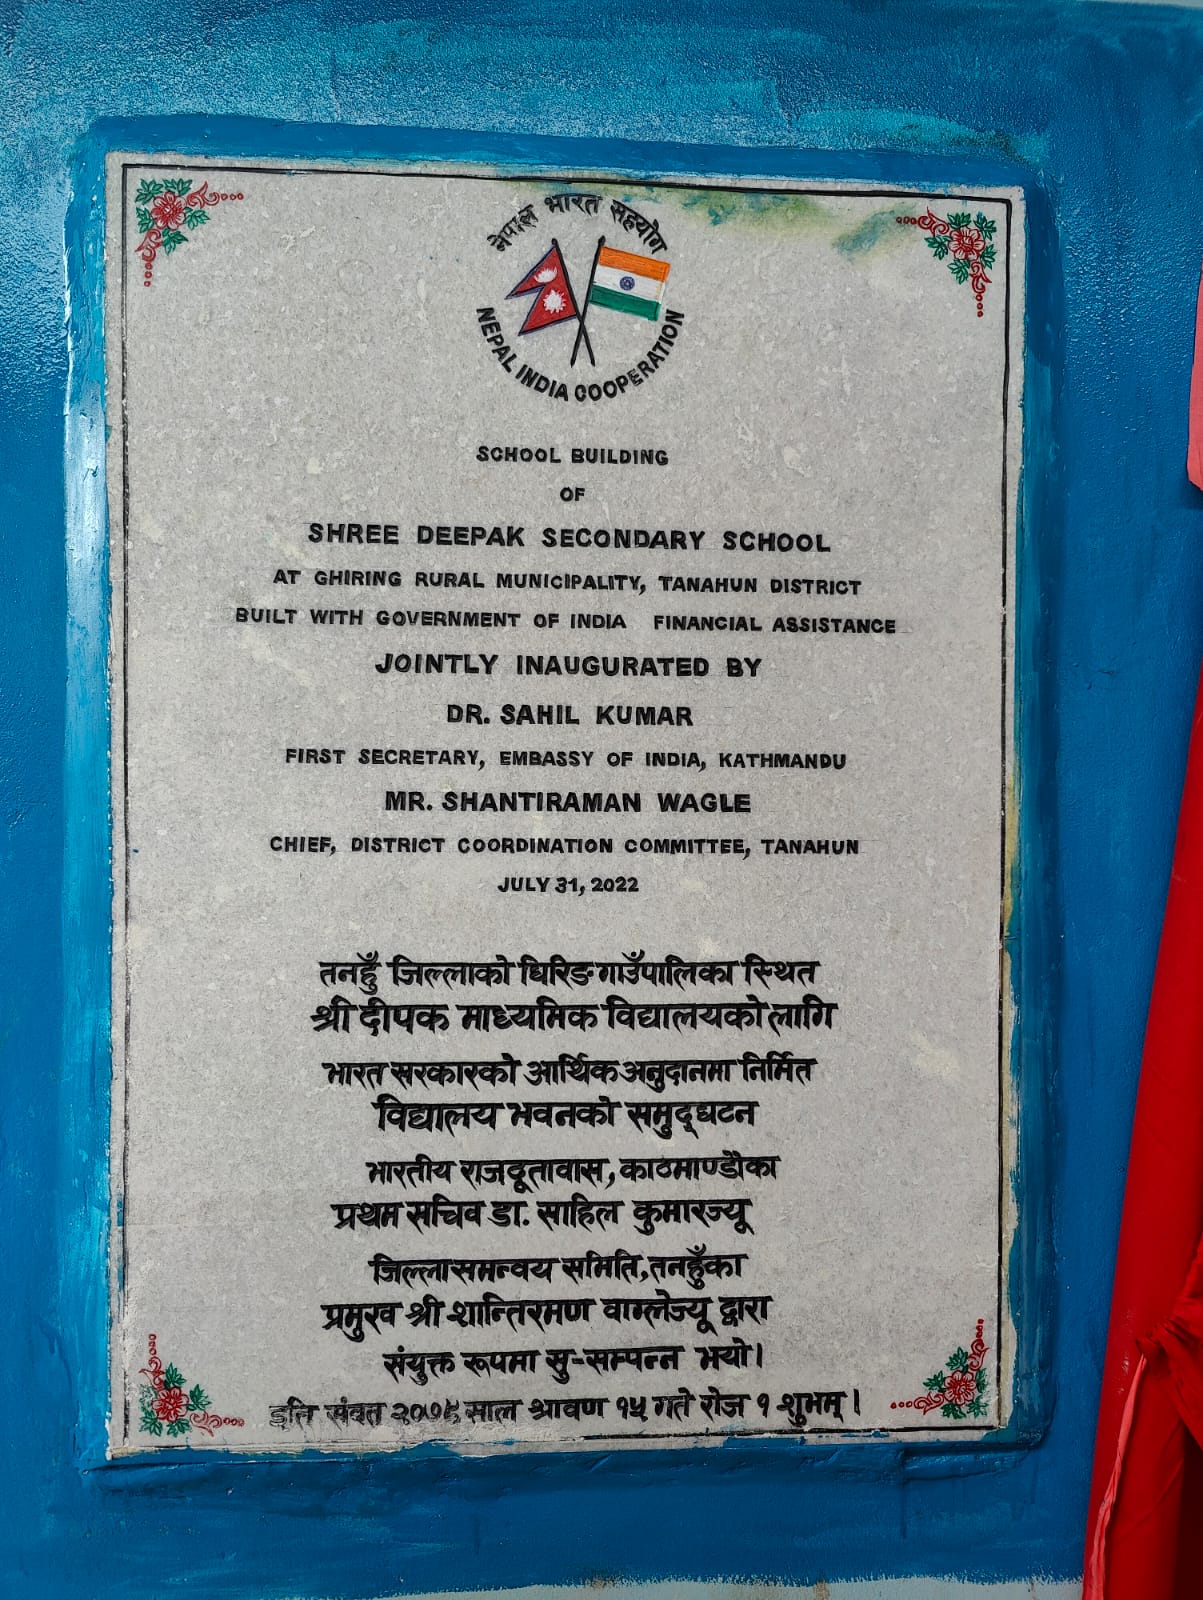 नेपाल भारत सहयोग
NEPAL INDIA COOPERATION
SCHOOL BUILDING
OF
SHREE DEEPAK SECONDARY SCHOOL
AT GHIRING RURAL MUNICIPALITY, TANAHUN DISTRICT
BUILT WITH GOVERNMENT OF INDIA FINANCIAL ASSISTANCE
JOINTLY INAUGURATED BY
DR. SAHIL KUMAR
FIRST SECRETARY, EMBASSY OF INDIA, KATHMANDU
MR. SHANTIRAMAN WAGLE
CHIEF, DISTRICT COORDINATION COMMITTEE, TANAHUN
JULY 31, 2022
तनहुँ जिल्लाको घिरिङ गाउँपालिका स्थित
श्री दीपक माध्यमिक विद्यालयको लागि
भारत सरकारको आर्थिक अनुदानमा निर्मित
विद्यालय भवनको समुद्घटन
भारतीय राजदूतावास, काठमाण्डौका
प्रथम सचिव डा. साहिल कुमारज्यू
जिल्ला समन्वय समिति, तनहुँका
प्रमुख श्री शान्तिरमण वाग्लेज्यू द्वारा
संयुक्त रूपमा सु-सम्पन्न भयो।
इति संवत २०७९ साल श्रावण १५ गते रोज १ शुभम्।